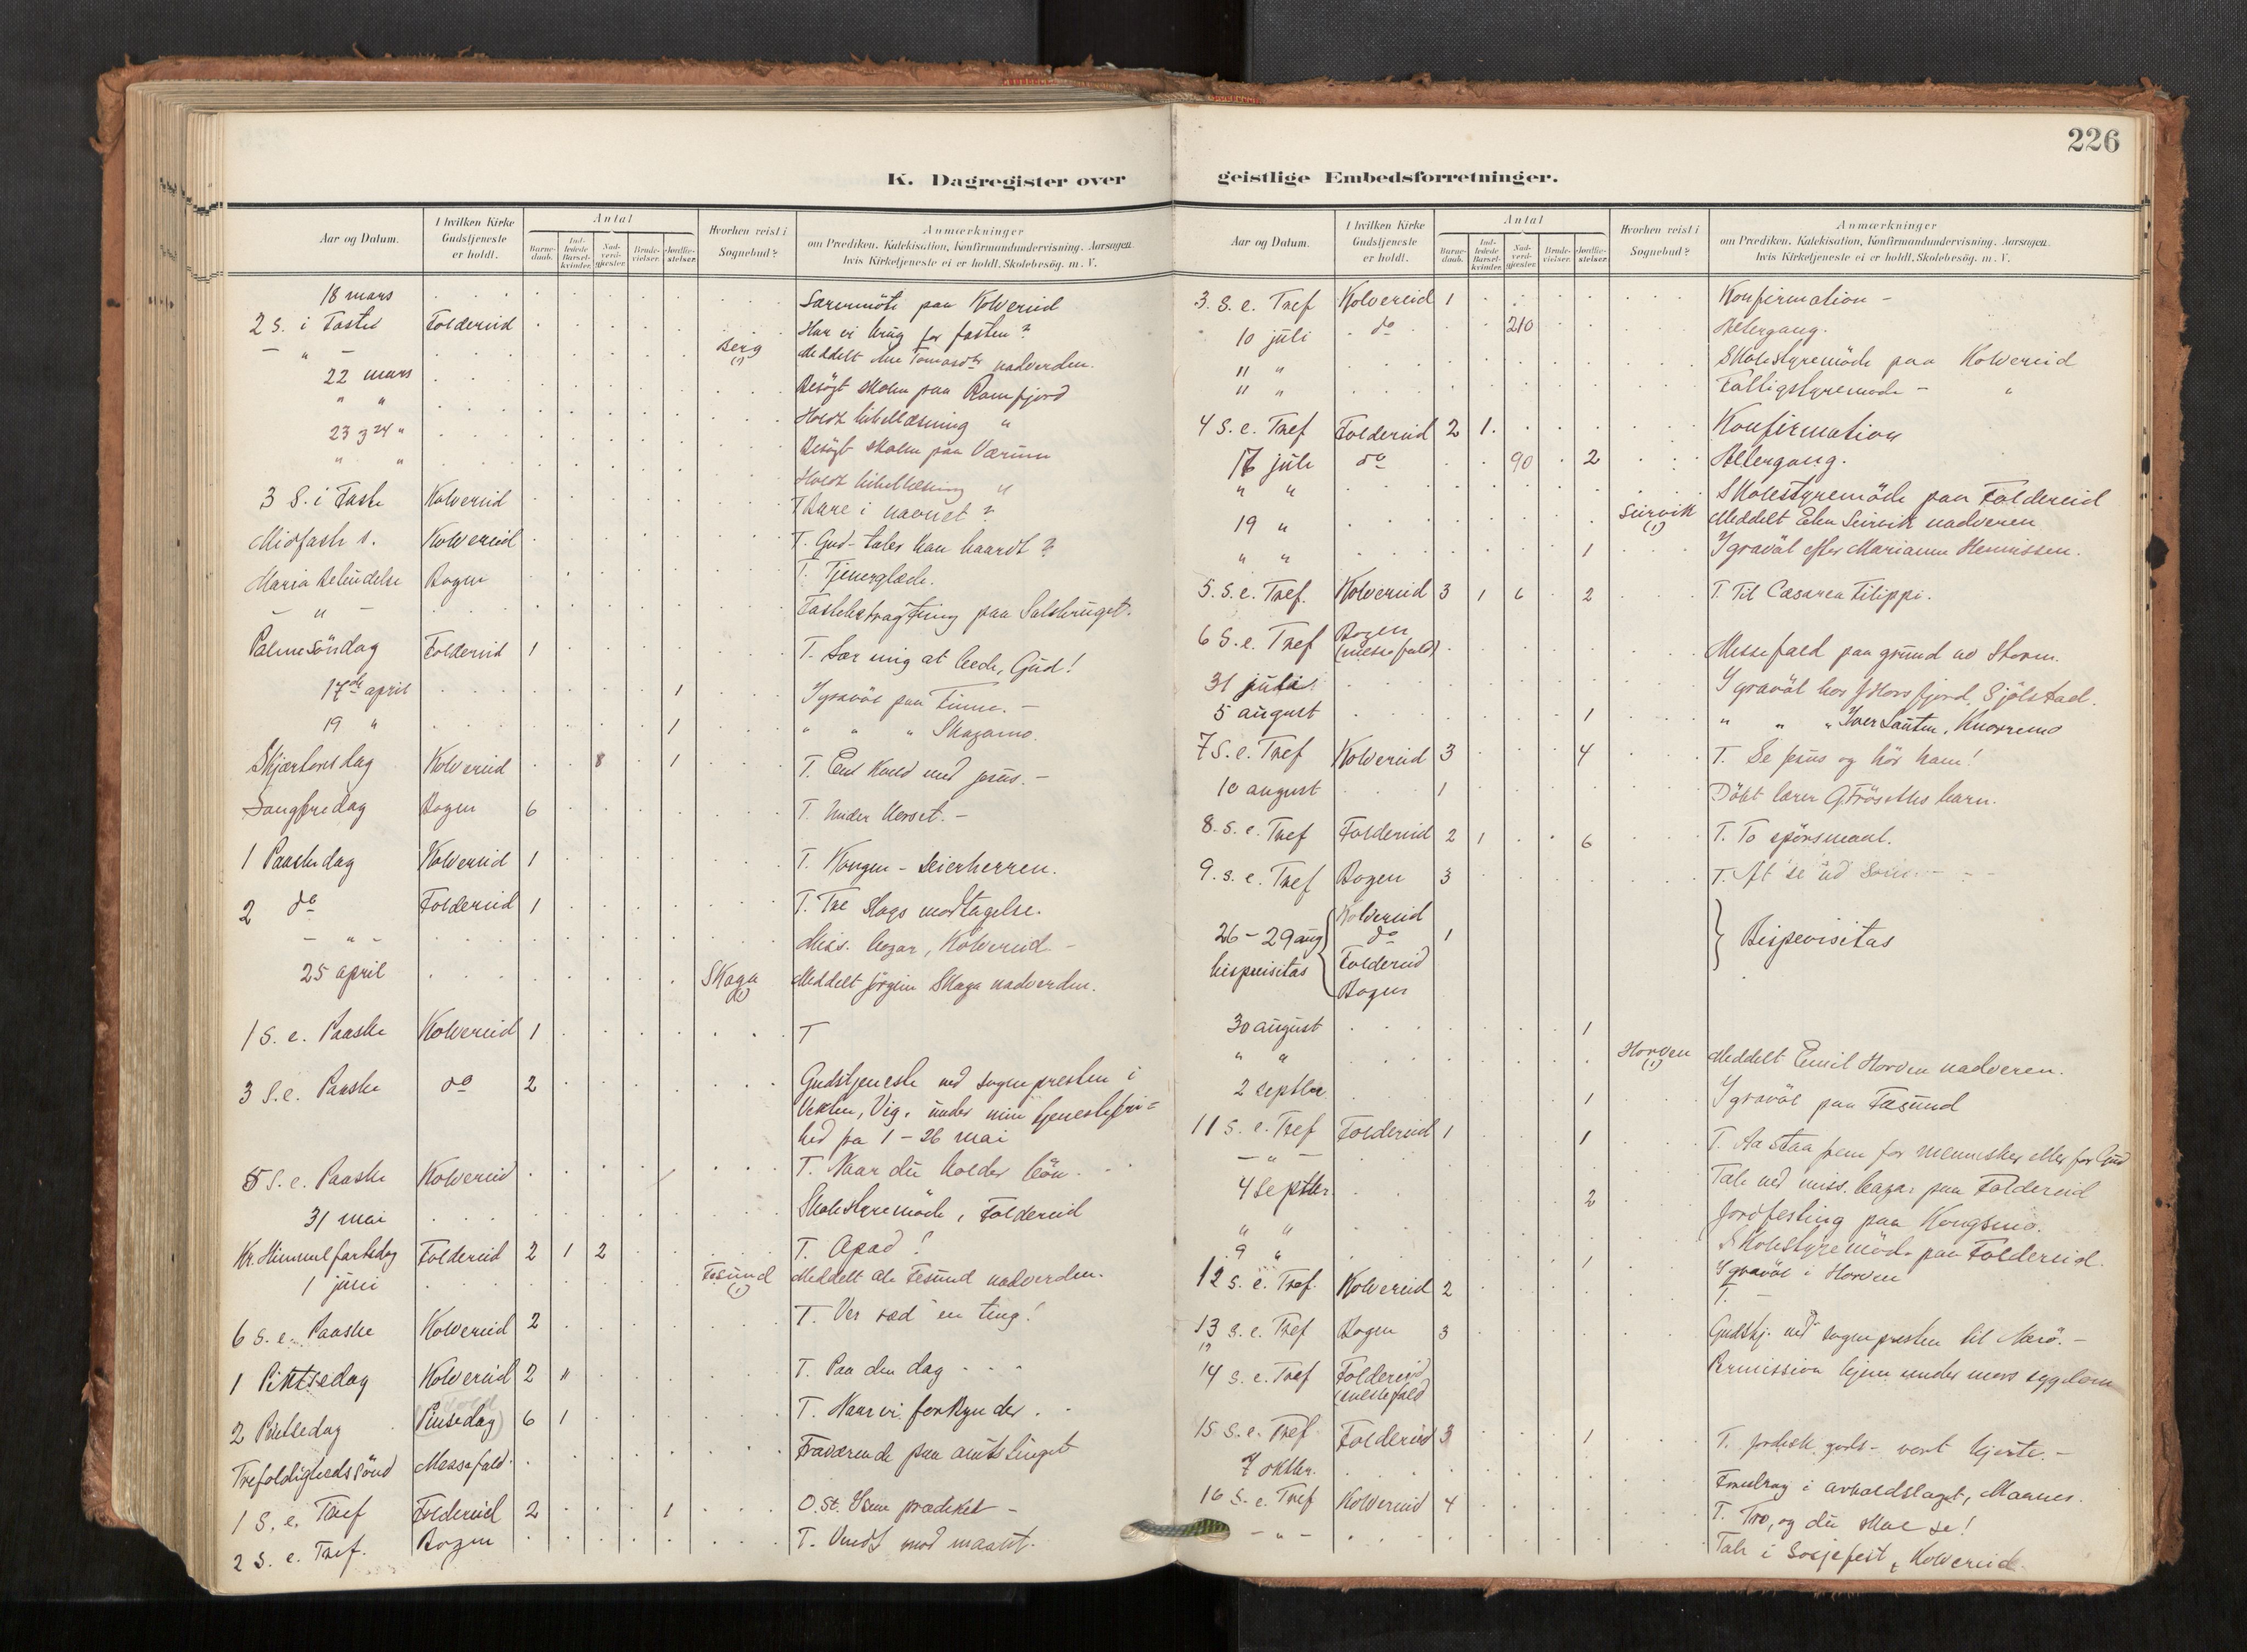 226
K. Dagregister over geistlige Embedsforretninger.
Aar og Datum. I hvilken Kirke Gudstjeneste er holdt. Antal Barnedaab. Indledede Barselkvinder. Nadverdgjester. Brudevielser. Jordfæstelser. Hvorhen reist i Sognebud? Anmærkninger om Prædiken. Katekisation, Konfirmandundervisning. Aarsagen hvis Kirketjeneste ei er holdt. Skolebesøg. m. V.
18 mars Lærermöte paa Kolvereid
2 S. i Faste Foldereid Har vi brug for fasten?
— " — Berg (1) Meddelt Ane Tomasdtr nadverden.
22 mars Besögt skolen paa Ramfjord
" " Holdt bibellæsning "
23 og 24 " Besögt skolen paa Værum
" " Holdt bibellæsning "
3 S. i Faste Kolvereid T Bare i navnet?
Midfaste s. Kolvereid T. Gud - taler han haardt?
Maria Bebudelse Bogen T. Tjenerglæde.
— " — Fastebetragtning paa Salsbruget.
Palmesöndag Foldereid 1 T. Lær mig at bede, Gud!
17de april 1 I gravöl paa Finne. —
19 " 1 " " " Skagamo.
Skjærtorsdag Kolvereid 8 1 T. En kveld med jesus. —
Langfredag Bogen 6 T. Under korset. —
1 Paaskedag Kolvereid 1 T. Kongen - seierherren.
2 do Foldereid 1 T. Tre slags modtagelse.
— " — Miss. bazar, Kolvereid —
25 april Skaga (1) Meddelt Jörgine Skaga nadverden.
1 S. e. Paaske Kolvereid 1 T
3 S. e. Paaske do 2 Gudstjeneste ved sognepresten i
Vikten, Vig, under min tjenestefri=
hed fra 1 - 26 mai
5 S. e. Paaske Kolvereid T. Naar du holder bön.
31 mai Skolestyremöde, Foldereid
Kr. Himmelfartsdag Foldereid 2 1 2 T. Opad!
1 juni Fesund (1) Meddelt Ole Fesund nadverden.
6 S. e. Paaske Kolvereid 2 T. Ver ræd en ting!
1 Pintsedag Kolvereid 2 " T. Paa den dag . . .
2 Pintsedag Pinsedag) 6 1 T. Naar vi forkynder . .
Trefoldighedssönd Messefald. Fraværende paa amtstinget
1 S. e. Tref Foldereid 2 1 O. St. prædiket —
2 S. e. Tref. Bogen T. Vendt mod maalet.
Aar og Datum. I hvilken Kirke Gudstjeneste er holdt. Antal Barnedaab. Indledede Barselkvinder. Nadverdgjester. Brudevielser. Jordfæstelser. Hvorhen reist i Sognebud? Anmærkninger om Prædiken. Katekisation, Konfirmandundervisning. Aarsagen hvis Kirketjeneste ei er holdt. Skolebesøg. m. V.
3. S. e. Tref Kolvereid 1 Konfirmation —
10 juli do 210 Altergang.
11 " Skolestyremöde paa Kolvereid
11 " Fattigstyremöde — "
4 S. e. Tref Foldereid 2 1. Konfirmation
17 juli do 90 2 Altergang.
" " Skolestyremöde paa Foldereid
19 " Seirvik (1) Meddelt Elen Seirvik nadveren
" " 1 I gravöl efter Marianne Henrissen.
5. S. e. Tref. Kolvereid 3 1 6 2 T. Til Cæsarea Filippi.
6 S. e. Tref Bogen
(messefald) Messefald paa grund av storm.
31 juli I gravöl hos J Horsfjord, Sjölstad.
5 august 1 " " " Iver Lauten, Knorremo
7 S. e. Tref Kolvereid 3 4 T. Se jesus og hör ham!
10 august 1 Döbt lærer G Fröseths barn.
8. S. e. Tref Foldereid 2 1 6 T. To spörsmaal.
9. s. e. Tref Bogen 3 T. At se ud som
26 - 29 aug Kolvereid
do 1
bispevisitas Foldereid
Bogen
Bispevisitas
30 august 1
" " Horven (1) Meddelt Emil Horven nadveren.
2 septbr 1 I gravöl paa Fæsund
11 S. e. Tref Foldereid 1 1 T. Aa staa frem for mennesker eller for Gud
— " — Tale ved miss. bazar paa Foldereid
4 septbr. 2 Jordfesting paa Kongsmo.
" " Skolestyremöde paa Foldereid.
9 " 1 I gravöl i Horven
12 s. e. Tref. Kolvereid 2 T. —
13 s. e. Tref Bogen 3 Gudstj. ved sognepresten til Nærö. —
14 s. e. Tref Foldereid
(messefald) Permission hjem under mors sygdom
15 s. e. Tref Foldereid 3 1 T. Jordisk gods - vort hjerte. —
7 oktbr. Foredrag i avholdslaget, Maanes.
16 S. e. Tref Kolvereid 4 T. Tro, og du skal se!
— " — Tale i Losjefest, Kolvereid.